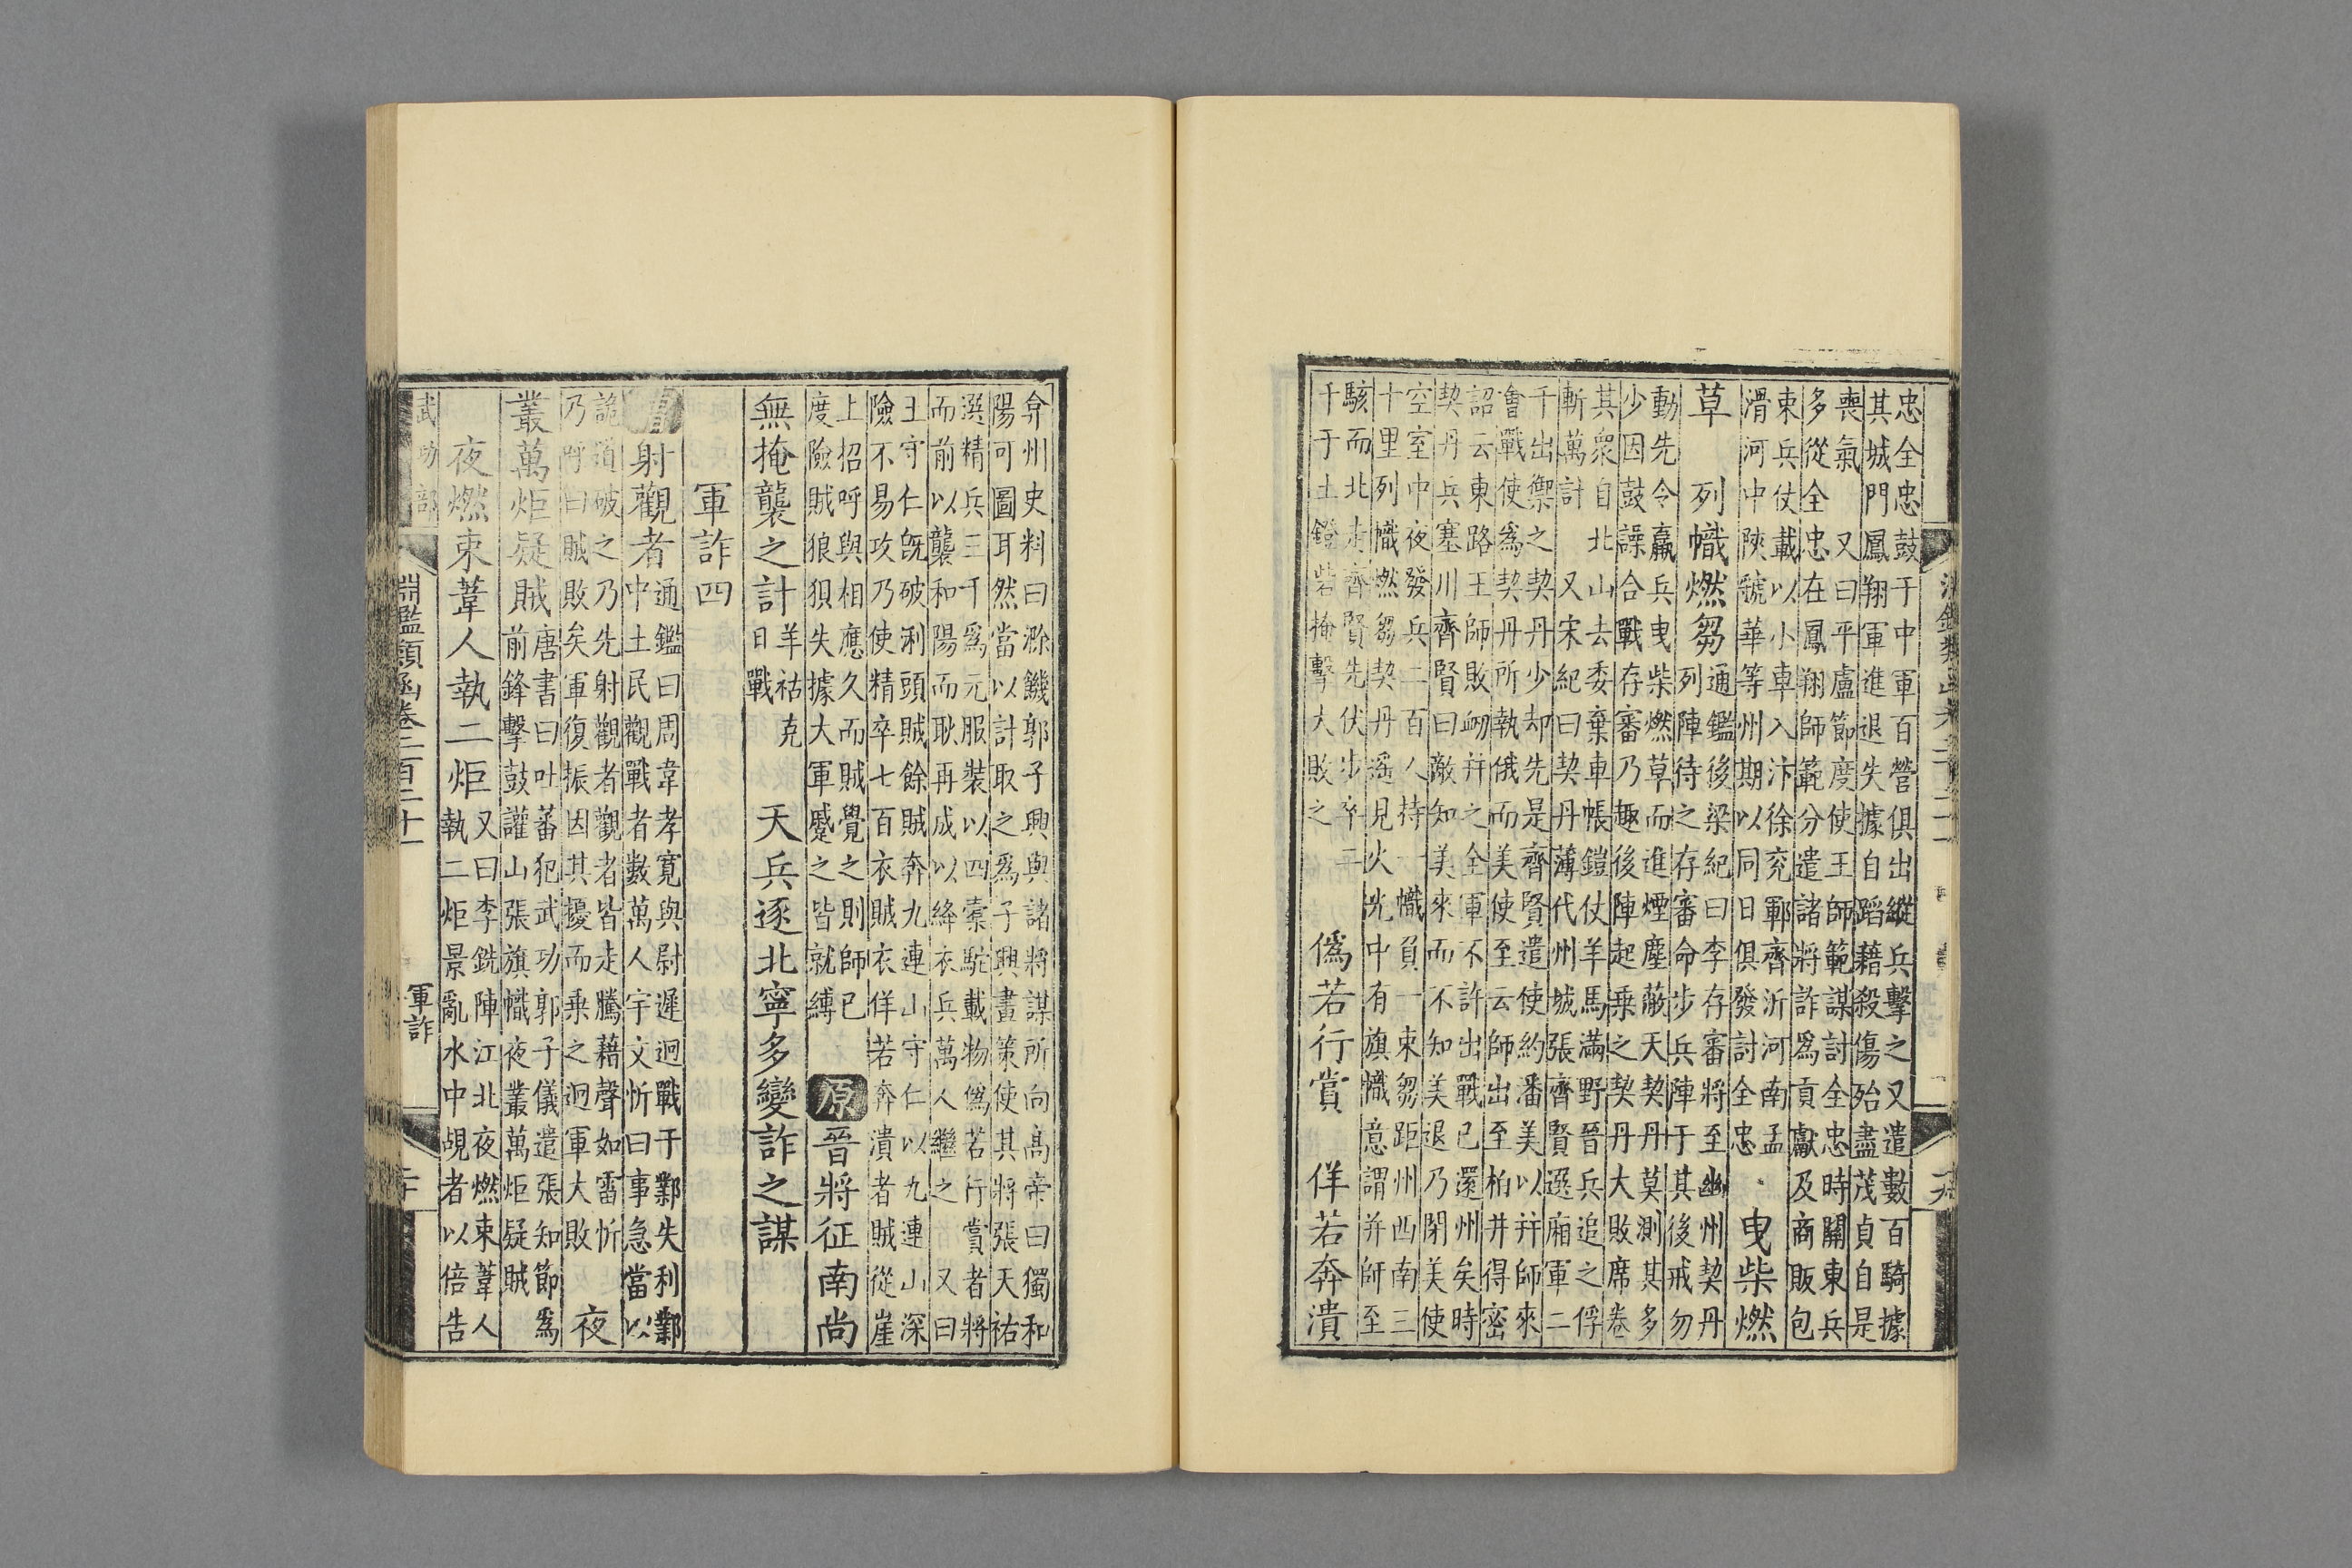 忠全忠鼓于中軍百營俱出縱兵擊之又遣數百騎據
其城門鳳翔軍進退失據自蹈藉殺傷殆盡茂貞自是
喪氣　又曰平盧節度使王師範謀討全忠時關東兵
多從全忠在鳳翔師範分遣諸將詐爲貢獻及商販包
束兵仗載以小車入汴徐兖鄆齊沂河南孟
滑河中陝虢華等州期以同日俱發討全忠
曳柴燃
草　列幟燃芻
通鑑後梁紀曰李存審將至幽州契丹
列陣待之存審命步兵陣于其後戒勿
動先令羸兵曳柴燃草而進煙塵蔽天契丹莫測其多
少因鼓譟合戰存審乃趣後陣起乗之契丹大敗席卷
其衆自北山去委棄車帳鎧仗羊馬滿野晉兵追之俘
斬萬計　又宋紀曰契丹薄代州城張齊賢選廂軍二
千出禦之契丹少却先是齊賢遣使約潘美以幷師來
會戰使爲契丹所執俄而美使至云師出至柏井得密
詔云東路王師敗衂幷之全軍不許出戰已還州矣時
契丹兵塞川齊賢曰敵知美來而不知美退乃閉美使
空室中夜發兵二百人持一幟負一束芻距州西南三
十里列幟燃芻契丹遥見火光中有旗幟意謂并師至
駭而北走齊賢先伏步卒二
千于土鐙砦掩擊大敗之
僞若行賞　佯若奔潰
弇州史料曰滁饑郭子興與諸將謀所向高帝曰獨和
陽可圖耳然當以計取之爲子興畫策使其將張天祐
選精兵三千爲元服裝以四橐駝載物僞若行賞者將
而前以襲和陽而耿再成以絳衣兵萬人繼之　又曰
王守仁既破浰頭賊餘賊奔九連山守仁以九連山深
險不易攻乃使精卒七百衣賊衣佯若奔潰者賊從崖
上招呼與相應久而賊覺之則師已
度險賊狼狽失據大軍蹙之皆就縛
原晉將征南尚
無掩襲之計
羊祜克
日戰
天兵逐北寧多變詐之謀
軍詐四
增射觀者
通鑑曰周韋孝寬與尉遲迥戰于鄴失利鄴
中士民觀戰者數萬人宇文忻曰事急當以
詭道破之乃先射觀者觀者皆走騰藉聲如雷忻
乃呼曰賊敗矣軍復振因其擾而乗之迥軍大敗
夜
叢萬炬疑賊
唐書曰吐蕃犯武功郭子儀遣張知節爲
前鋒擊鼓讙山張旗幟夜叢萬炬疑賊
夜燃束葦人執二炬
又曰李銑陣江北夜燃束葦人
執二炬景亂水中覘者以倍告
武功部　淵鑑類函卷二百二十一　軍詐　二十